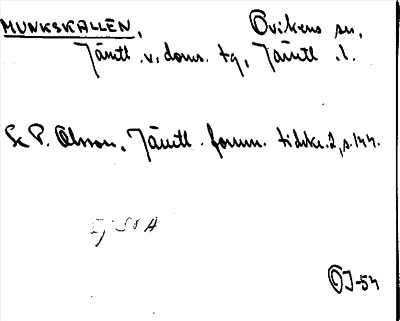 MUNKSKALLEN, Ovikens sn,
Jämtl. v. doms. tg, Jämtl. l.
Se P. Olsson, Jämtl. fornm. tidskr. 2, s. 144.
Ej SOA
OJ-54